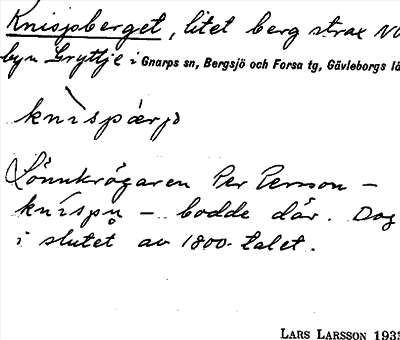 Knispberget, litet berg strax NV
byn Gryttje i Gnarps sn, Bergsjö och Forsa tg, Gävleborgs lä
knìspærjə
Lönnkrögaren Per Persson –
knispn̥ – bodde där. Dog
i slutet av 1800-talet.
LARS LARSSON 1933